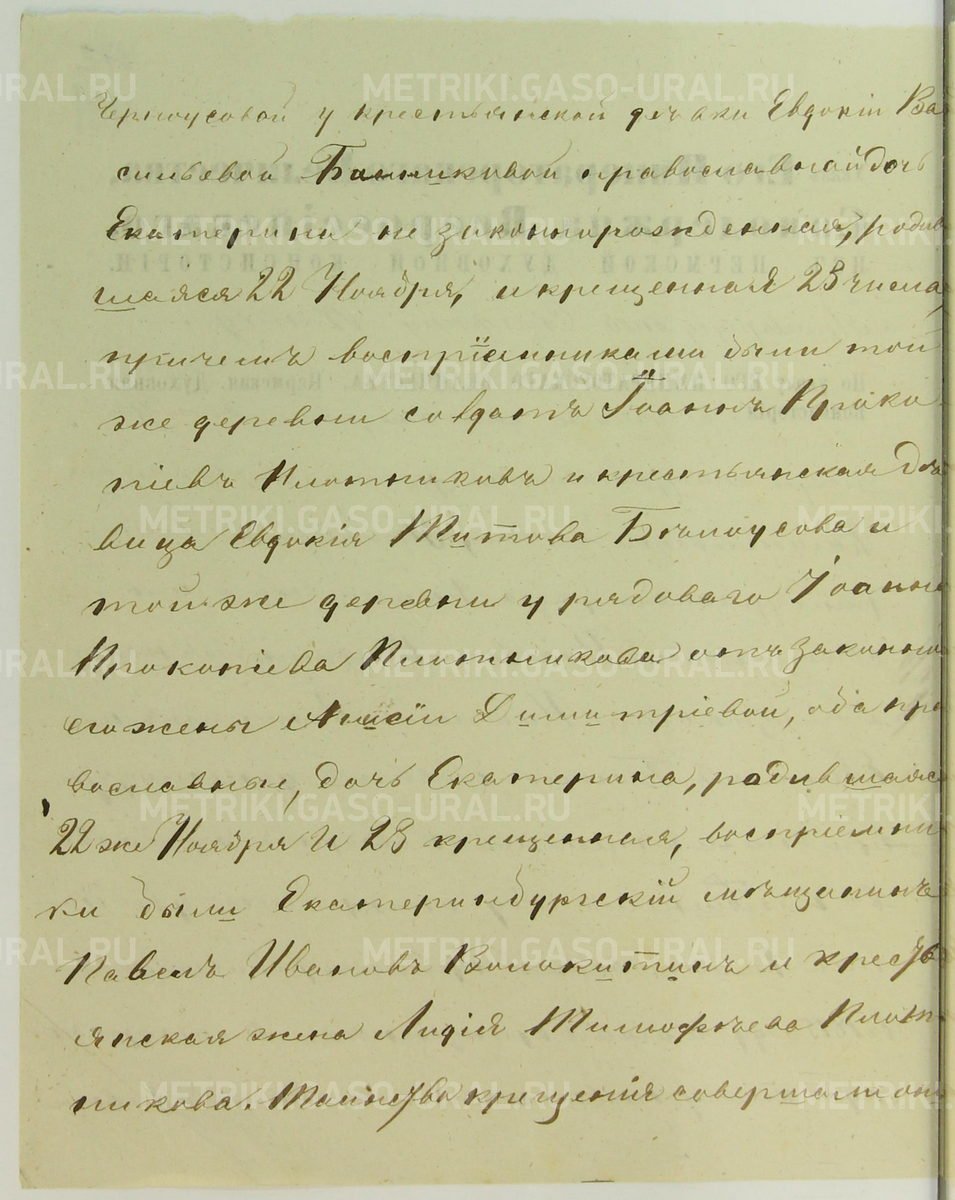 Черноусовой у крестьянской дѣвки Евдокіи Ва
сильевой Банниковой православной дочь
Екатерина не законнорожденная, родив
шаяся 22 Ноября, и крещенная 28 числа,
причемъ воспріемниками были той
же деревни солдатъ Іоаннъ Проко
піевъ Плотниковъ и крестьянская дѣ
вица Евдокія Титова Бѣлоусова и
той же деревни у рядоваго Іоанна
Прокопіева Плотникова отъ законной
его жены Анисіи Димитріевой, оба пра
вославные, дочь Екатерина, родившаяся
22 же Ноября и 28 крещенная, воспріемни
ки были Екатеринбургскій мѣщанинъ
Павелъ Ивановъ Волокитинъ и крестьѣ
янская жена Лидія Тимофѣева Плот
никова. Таинство крещенія совершалъ
METRIKI.GASO-URAL.RU